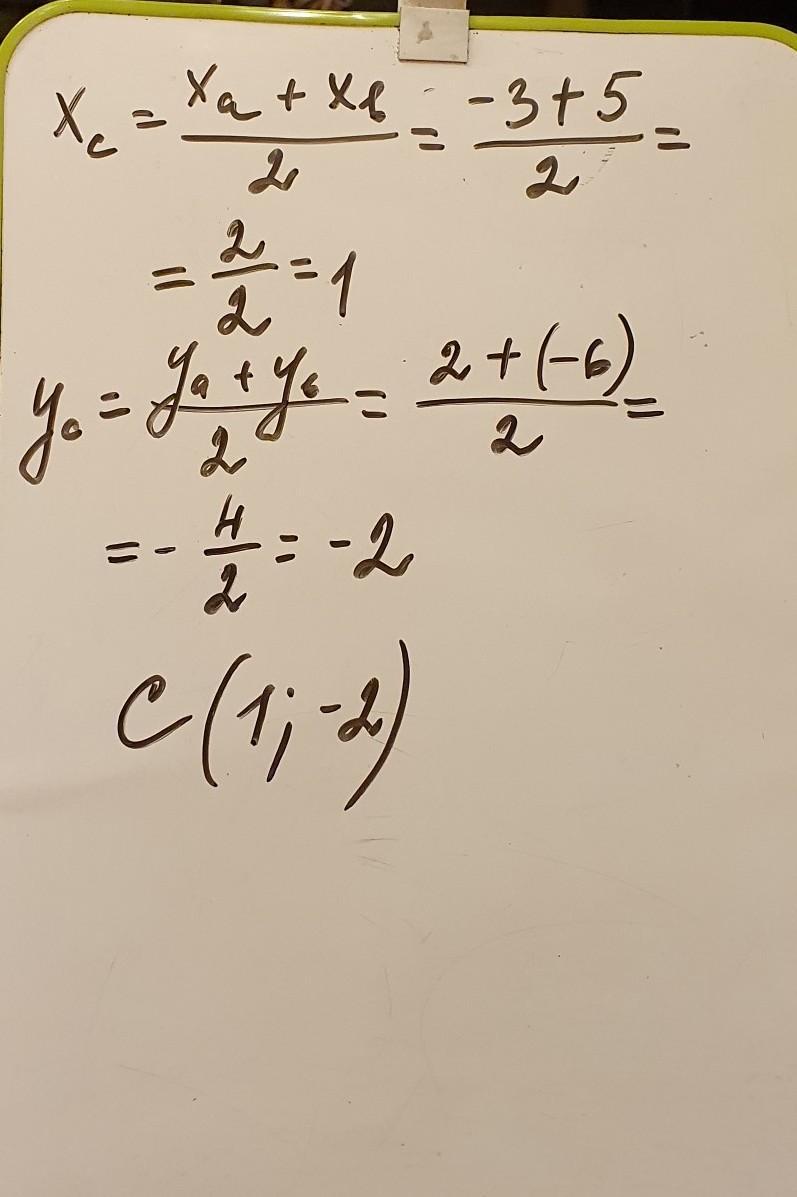 x_c = (x_a + x_b)/2 = (-3+5)/2 =
= 2/2 = 1
y_c = (y_a + y_b)/2 = (2+(-6))/2 =
= - 4/2 = -2
C(1; -2)